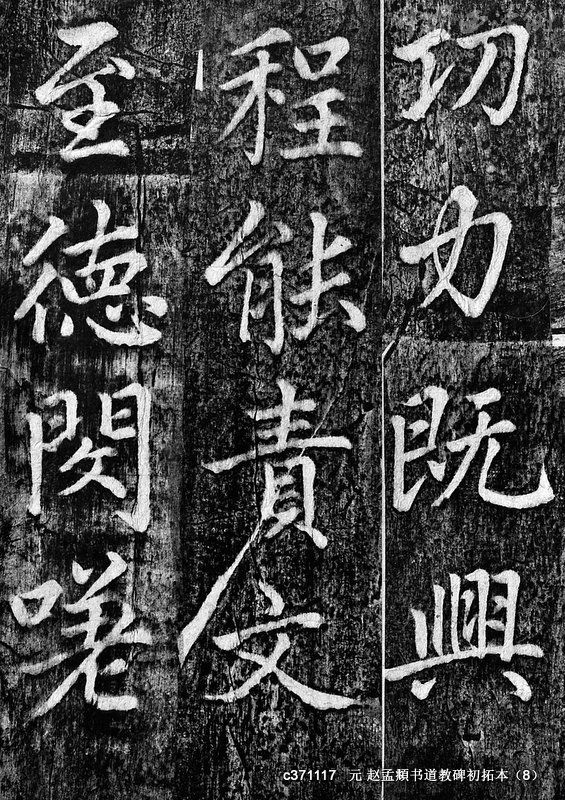 功力既興
程能責文
至德閔
c371117 元 赵孟頫书道教碑初拓本（8）